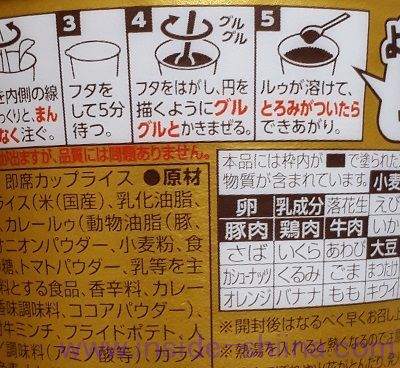 3 4 グルグル 5
を内側の線
っくりと、まん
なく注ぐ。
フタを
して5分
待つ。
フタをはがし、円を
描くようにグル
グルとかきまぜる。
ルゥが溶けて、
とろみがついたら
できあがり。
が出ますが、品質には問題ありません。
即席カップライス ●原材
ライス(米(国産)、乳化油脂、
、カレールゥ(動物油脂(豚、
オニオンパウダー、小麦粉、食
糖、トマトパウダー、乳等を主
料とする食品、香辛料、カレー
香味調味料、ココアパウダー、
牛ミンチ、フライドポテト、人
/調味料(アミノ酸等)、カラ
本品には枠内が■で塗られた
物質が含まれています。 小麦
卵 乳成分 落花生 えび
豚肉 鶏肉 牛肉 いか
さば いくら あわび 大豆
カシューナッツ くるみ ごま まつたけ
オレンジ バナナ もも キウイ
※開封後はなるべく早くお召し上
www.inside-china.com